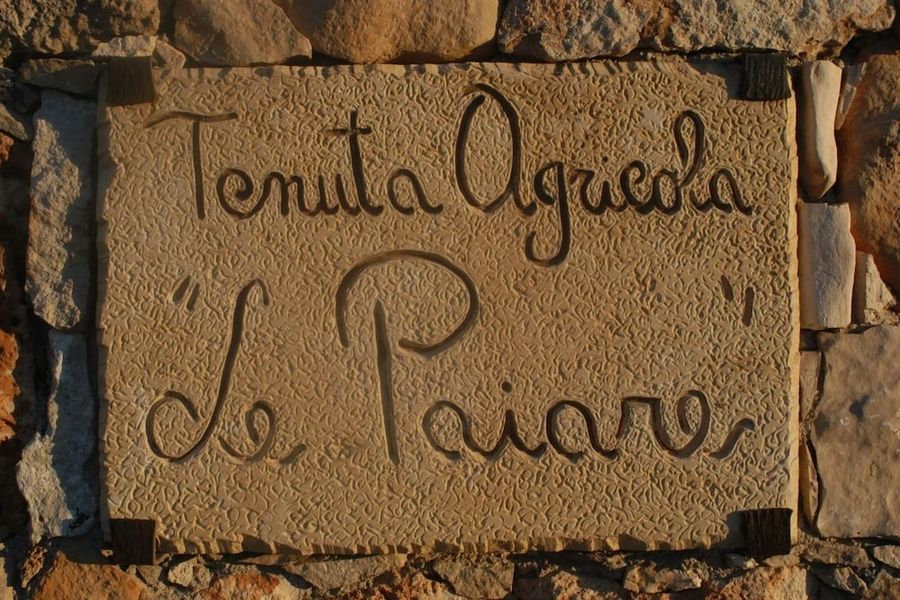 Tenuta Agricola
"Le Paiare"